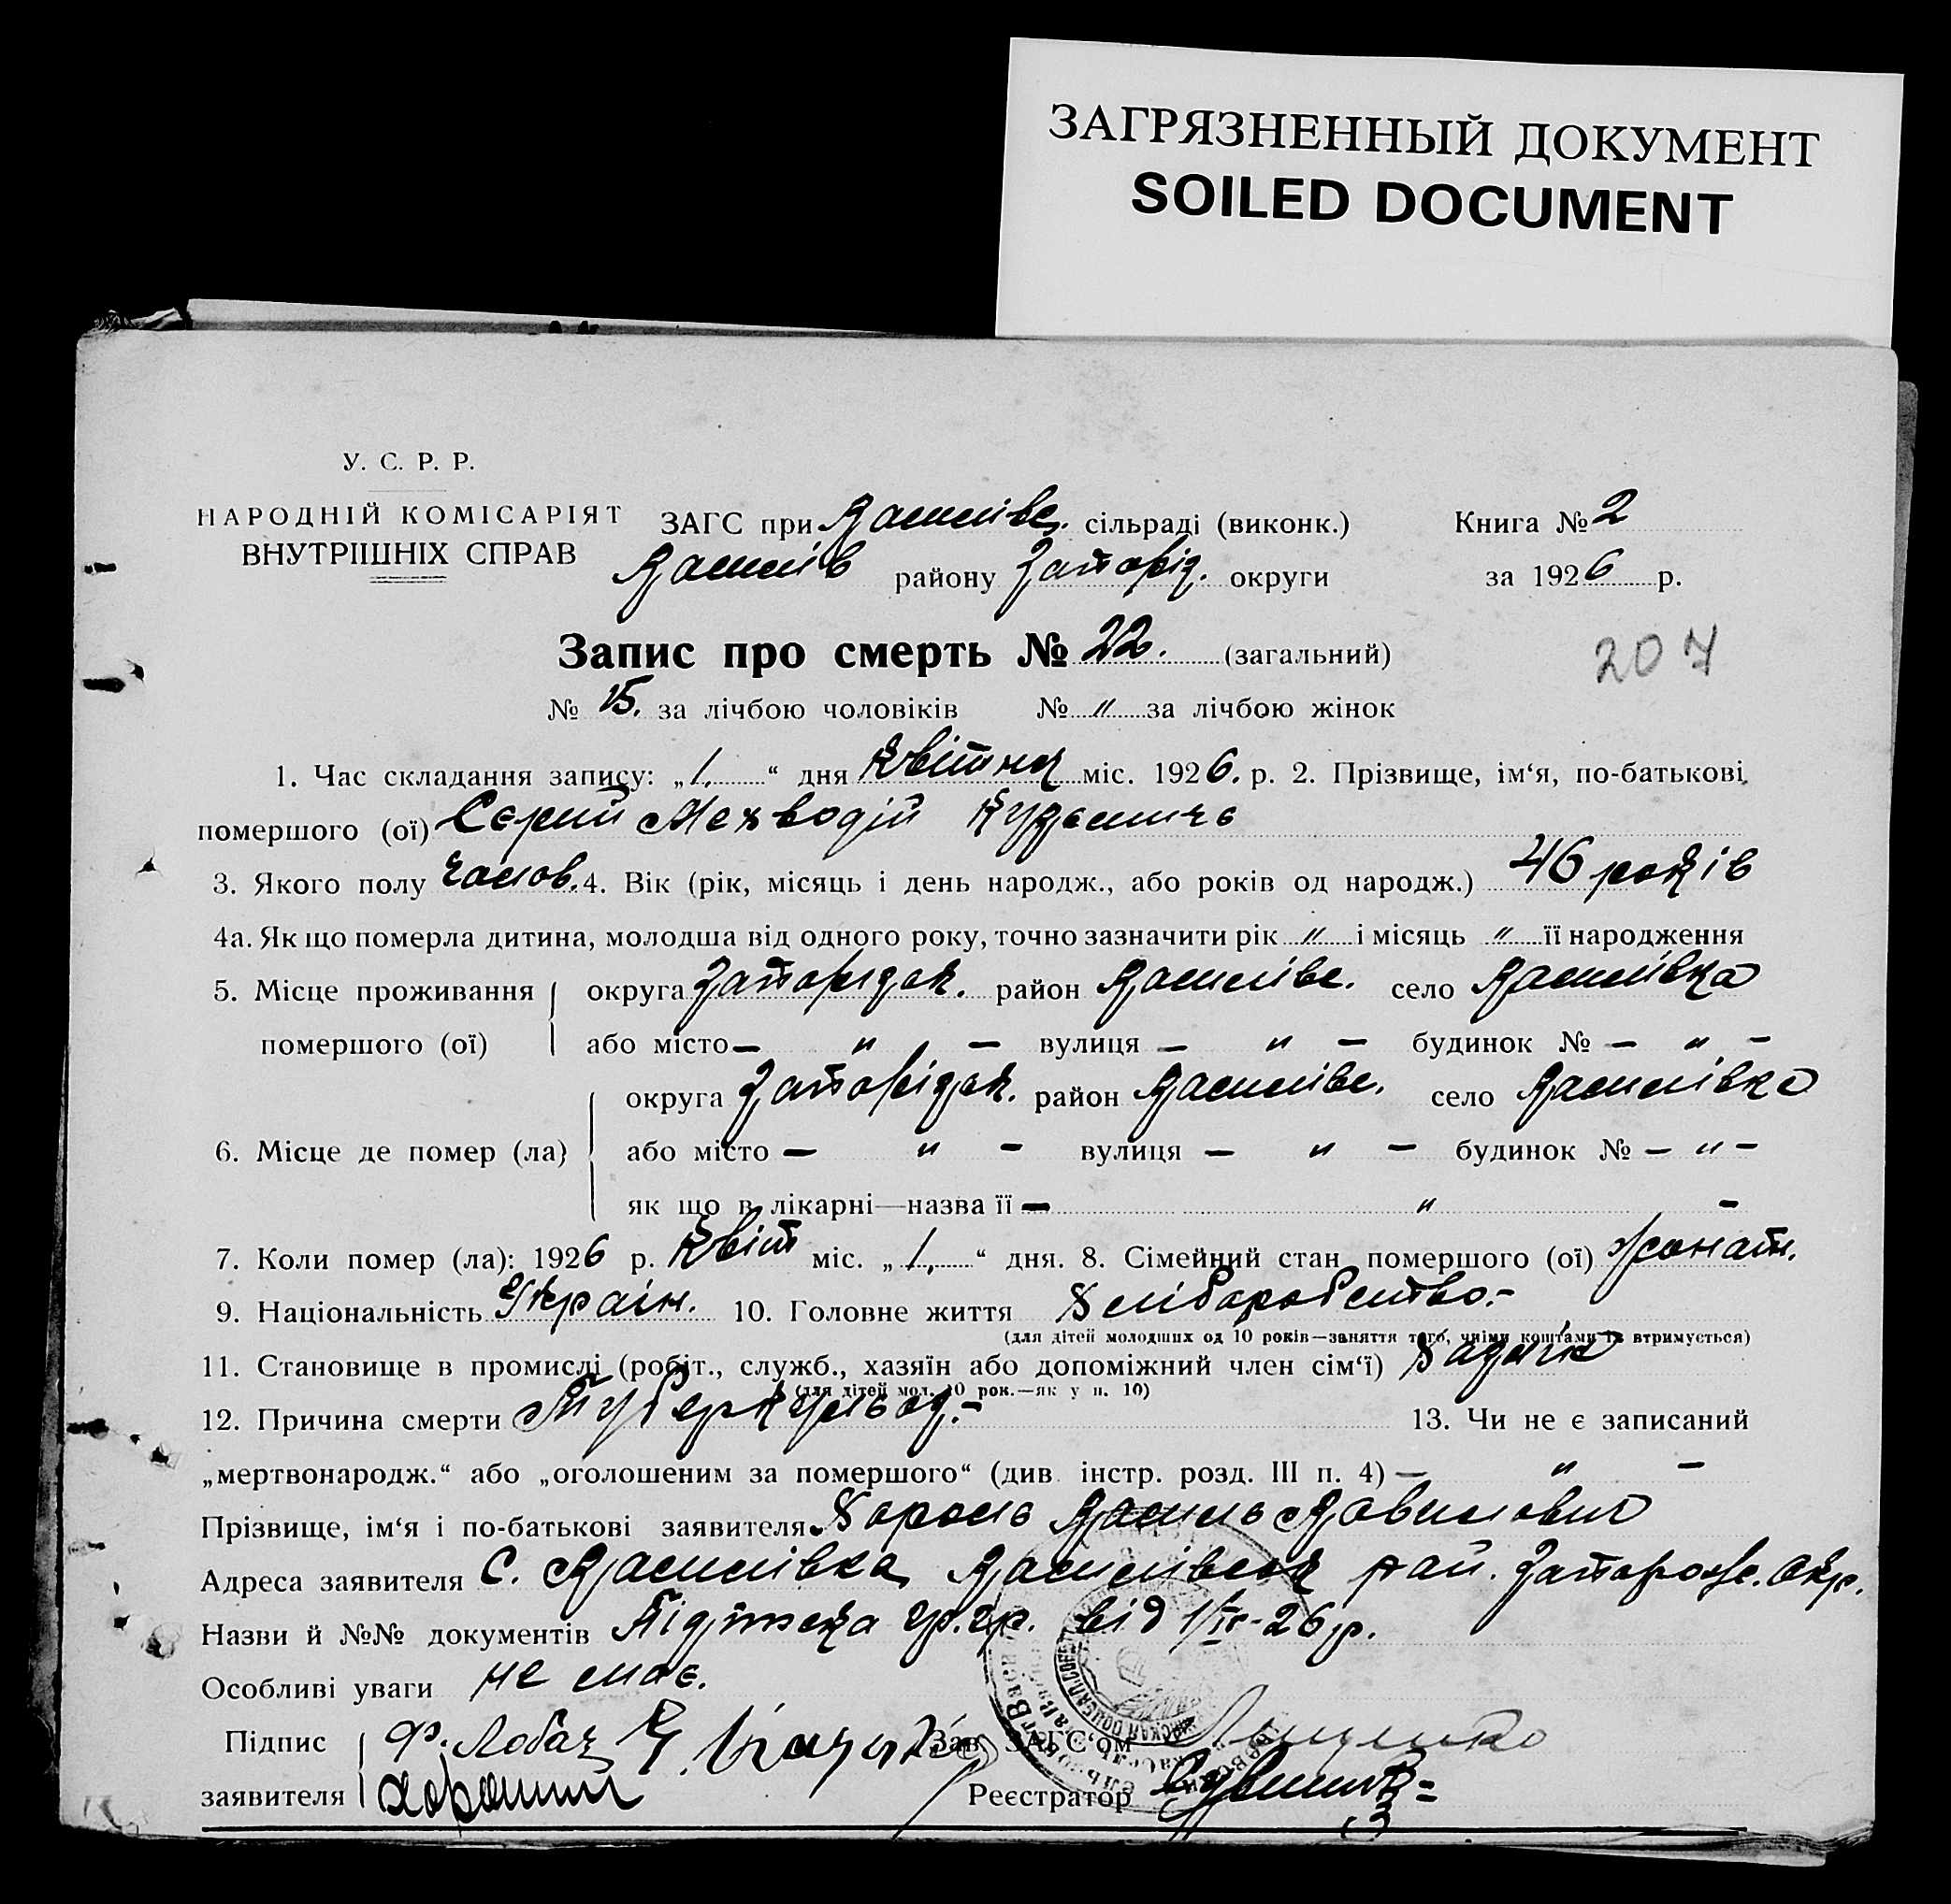 ЗАГРЯЗНЕННЫЙ ДОКУМЕНТ
SOILED DOCUMENT
У. С. Р. Р.
НАРОДНІЙ КОМІСАРІЯТ
ВНУТРІШНІХ СПРАВ
ЗАГС при Василівс. сільраді (виконк.)
Василів району Запоріз. округи
Книга № 2
за 1926 р.
Запис про смерть № 22. (загальний)
207
№ 15. за лічбою чоловіків № " за лічбою жінок
1. Час складання запису: „1.“ дня Квітня міс. 1926. р. 2. Прізвище, ім‘я, по-батькові
помершого (ої)
3. Якого полу чолов. 4. Вік (рік, місяць і день народж., або років од народж.) 46 років
4а. Як що померла дитина, молодша від одного року, точно зазначити рік " і місяць " її народження
5. Місце проживання помершого (ої) округа Запорізьк. район Василівс. село Василівка
або місто — " — вулиця — " — будинок № — " —
6. Місце де помер (ла) округа Запорізьк. район Василівс. село Василівка
або місто — " — вулиця — " — будинок № — " —
як що в лікарні—назва її — " —
7. Коли помер (ла): 1926 р. Квіт міс. „1.“ дня. 8. Сімейний стан помершого (ої) жонат.
9. Національність Україн. 10. Головне життя Хліборобство.-
(для дітей молодших од 10 років—заняття того, чиїми коштами їх втримується)
11. Становище в промислі (робіт., служб., хазяїн або допоміжний член сім‘ї) Хазяїн
(для дітей мол. 10 рок.—як у п. 10)
12. Причина смерти Туберкульоз.- 13. Чи не є записаний
„мертвонародж.“ або „оголошеним за помершого“ (див. інстр. розд. III п. 4) — " —
Прізвище, ім‘я і по-батькові заявителя Василь
Адреса заявителя С. Василівка, Василівськ рай. Запорож. Окр.
Назви й №№ документів від 1/IV-26 р.
Особливі уваги не має.
Підпис заявителя Ф. Лобач
Зав. ЗАГС‘ом
Реєстратор